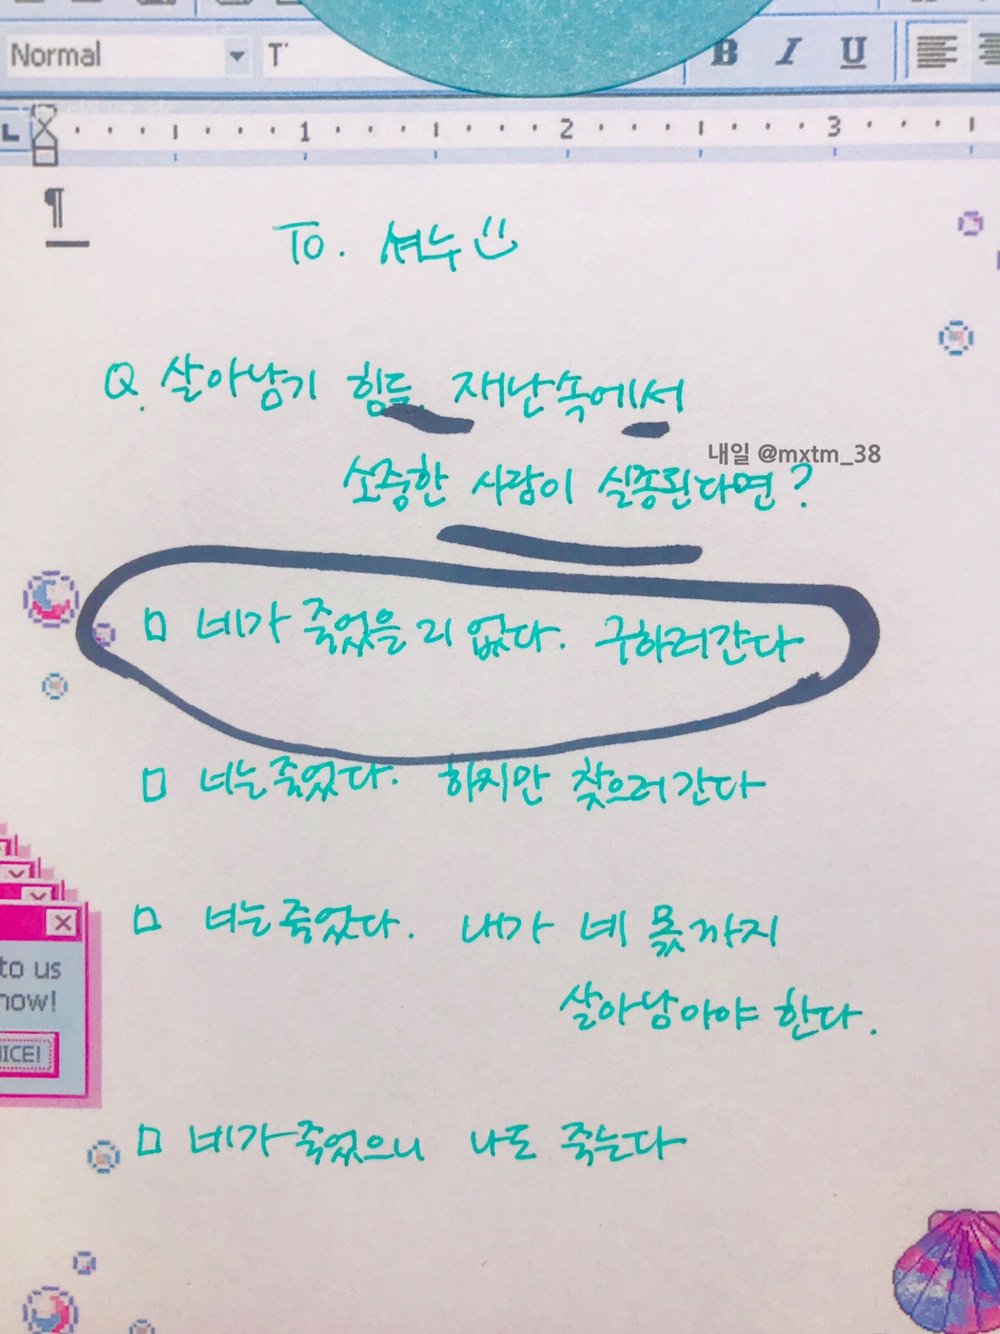 Normal T B I U
L 1 2 3
¶
To. 셔누
Q. 살아남기 힘든 재난속에서
내일 @mxtm_38
소중한 사람이 실종된다면?
□ 네가 죽었을 리 없다. 구하러간다
□ 너는 죽었다. 하지만 찾으러 간다
□ 너는 죽었다. 내가 네 몫까지
to us
now!
살아남아야 한다.
NICE!
□ 네가 죽었으니 나도 죽는다